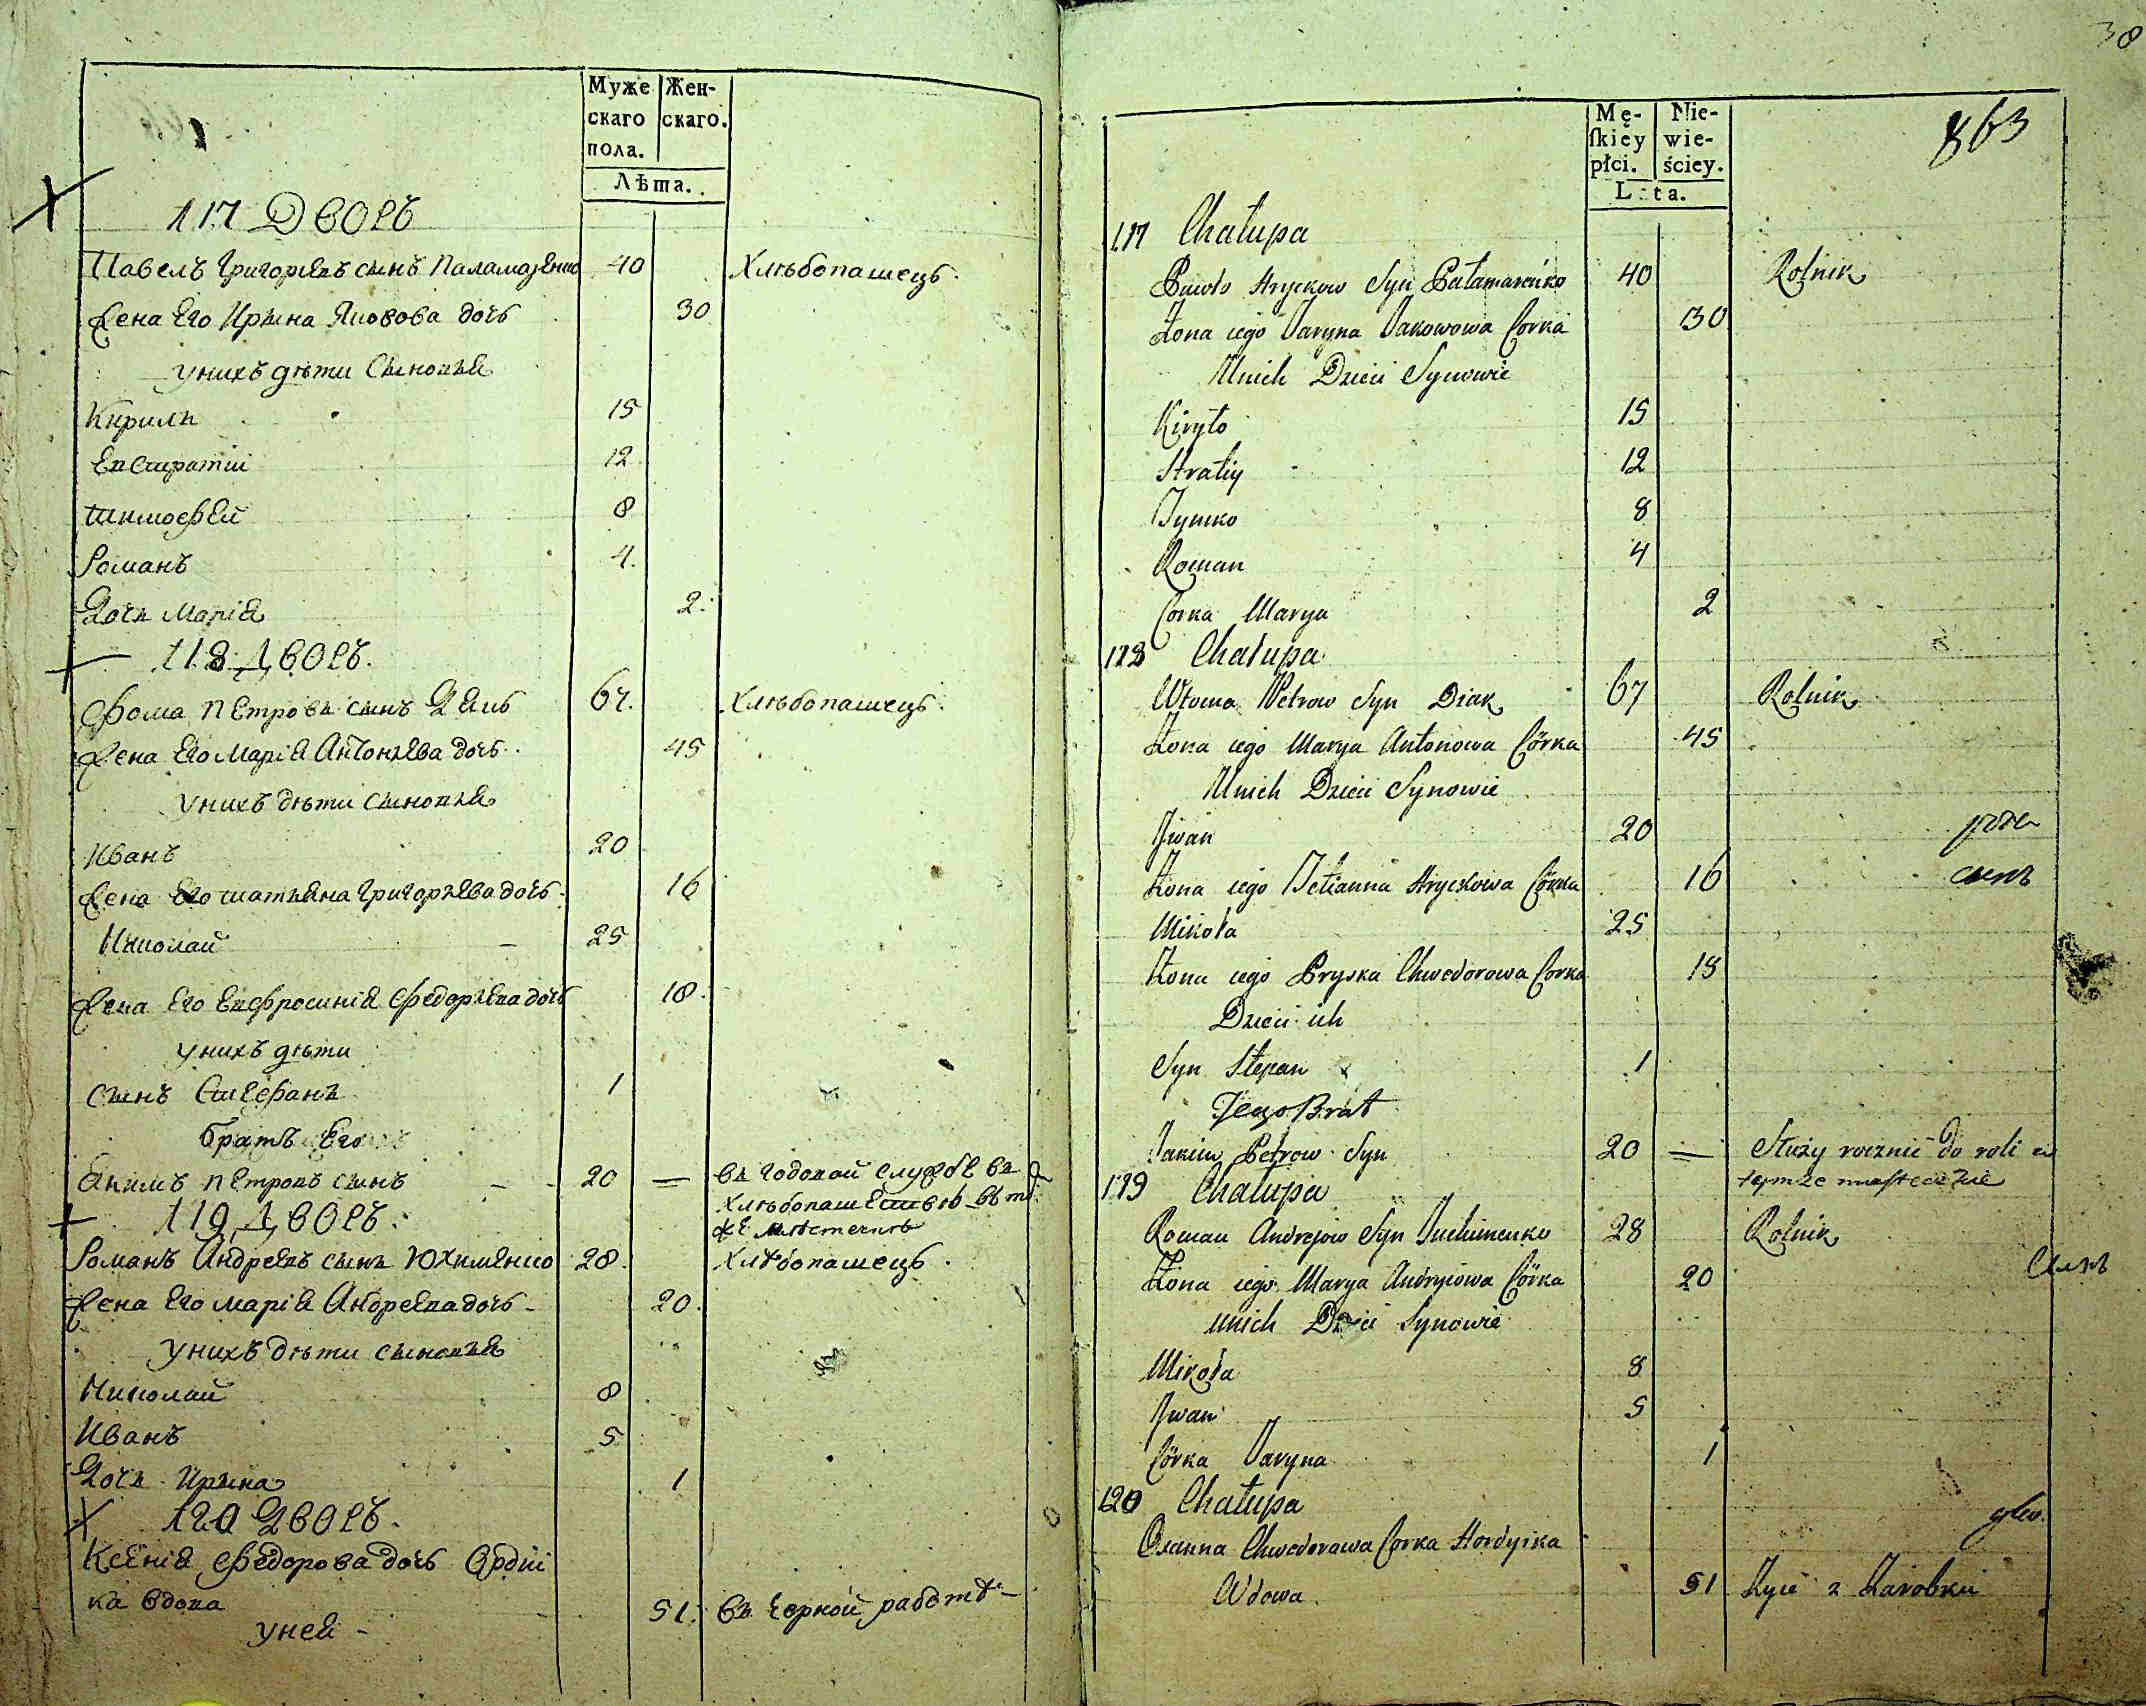 38
Муже
скаго
пола.
Жен-
скаго.
Лѣта.
117 Дворъ
Павелъ Григорьевъ сынъ Паламаренко 40 Хлѣбопашецъ
Жена Его Ирина Яковова дочь 30
у нихъ дѣти Сыновья
Кирилъ 15
Евстратій 12
Тимофей 8
Романъ 4.
Дочь Марія 2.
118 Дворъ.
Фома Петровъ сынъ Дякъ 67. Хлѣбопашецъ.
Жена Его Марія Антоньева дочь 45
у нихъ дѣти сыновья
Иванъ 20
Жена Его Татьяна Григорьева дочь 16
Николай 25
Жена Его Евфросинія Федорьева дочь 18.
у нихъ дѣти
сынъ Стефанъ 1
братъ Его
Якимъ Петровъ сынъ 20 — въ годовой службе въ
Хлѣбопашествѣ въ то
же мѣстечкѣ
119 Дворъ.
Романъ Андреевъ сынъ Юхименко 28. Хлѣбопашецъ.
Жена Его Марія Андреева дочь 20.
у нихъ дѣти сыновья
Николай 8
Иванъ 5
Дочь Ирина 1
120 Дворъ.
Ксенія Федорова дочь Ордій
ка вдова 51. въ чорной работѣ
у ней
Mę-
ſkiey
płci.
Nie-
wie-
ściey.
Lata.
863
117 Chałupa
Pawło Hryckow Syn Pałamarenko 40 Rolnik
Żona iego Jaryna Jakowowa Corka 30
Unich Dzieci Synowie
Kiryło 15
Stratiy 12
Tymko 8
Roman 4
Corka Marya 2
118 Chałupa
Choma Petrow Syn Diak 67 Rolnik
Żona iego Marya Antonowa Córka 45
Unich Dzieci Synowie
Iwan 20
Żona iego Tetianna Hryckowa Córka 16 сынъ
Mikoła 25
Żona iego Pryska Chwedorowa Corka 18
Dzieci ich
Syn Stepan 1
Jego Brat
Jakim Petrow Syn 20 — Służy rocznie do roli w
tymże miasteczkie
119 Chałupa
Roman Andrejow Syn Juchimenko 28 Rolnik
Żona iego Marya Andryiowa Córka 20
unich Dzieci Synowie
Mikoła 8
Iwan 5
Córka Jaryna 1
120 Chałupa
Oxanna Chwedorowa Corka Hordyika
Wdowa 51 Żyie z Zarobku